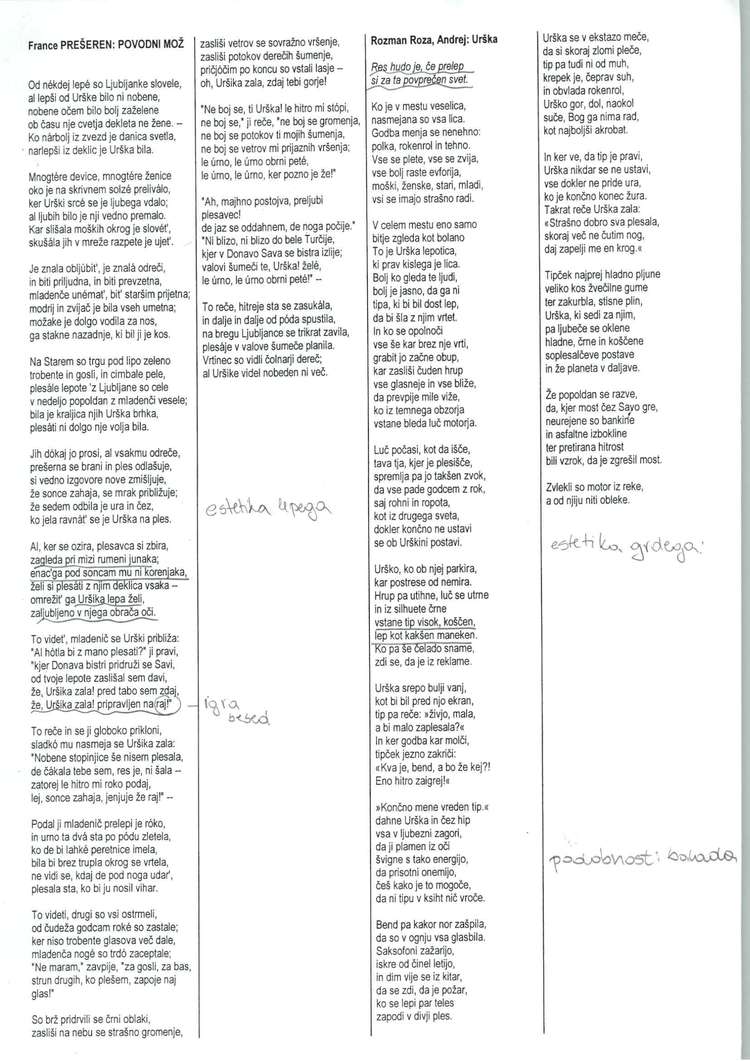 France PREŠEREN: POVODNI MOŽ
Od nékdej lepé so Ljubljanke slovele,
al lepši od Urške bilo ni nobene,
nobene očem bilo bolj zaželene
ob času nje cvetja dekleta ne žene. –
Ko nárbolj iz zvezd je danica svetla,
narlepši iz deklic je Urška bila.
Mnogtére device, mnogtére ženice
oko je na skrivnem solzé prelivâlo,
ker Urški srcé se je ljubega vdalo;
al ljubih bilo je nji vedno premalo.
Kar slišala moških okrog je slovét',
skušâla jih v mreže razpete je ujet'.
Je znala obljúbit', je znalá odreči,
in biti priljudna, in biti prevzetna,
mladenče unémat', bit' staršim prijetna;
modrij in zvijač je bila vseh umetna;
možake je dolgo vodila za nos,
ga stakne nazadnje, ki bil ji je kos.
Na Starem so trgu pod lipo zeleno
trobente in gosli, in cimbale pele,
plesále lepote 'z Ljubljane so cele
v nedeljo popoldan z mladenči vesele;
bila je kraljica njih Urška brhka,
plesáti ni dolgo nje volja bila.
Jih dókaj jo prosi, al vsakmu odreče,
prešerna se brani in ples odlašuje,
si vedno izgovore nove zmišljuje,
že sonce zahaja, se mrak približuje;
že sedem odbila je ura in čez,
ko jela ravnát' se je Urška na ples.
Al, ker se ozira, plesavca si zbira,
zagleda pri mizi rumeni junaka;
enac'ga pod soncam mu ni korenjaka,
želi si plesáti z njim deklica vsaka –
omrežit' ga Uršika lepa želi,
zaljubljeno v njega obrača oči.
To videt', mladenič se Urški približa:
"Al hótla bi z mano plesati?" ji pravi,
"kjer Donava bistri pridruži se Savi,
od tvoje lepote zaslišal sem davi,
že, Uršika zala! pred tabo sem zdaj,
že, Uršika zala! pripravljen na raj!"
igra
besed
To reče in se ji globoko prikloni,
sladkó mu nasmeja se Uršika zala:
"Nobene stopinjice še nisem plesala,
de čákala tebe sem, res je, ni šala –
zatorej le hitro mi roko podaj,
lej, sonce zahaja, jenjuje že raj!" --
Podal ji mladenič prelepi je róko,
in urno ta dvá sta po pódu zletela,
ko de bi lahké peretnice imela,
bila bi brez trupla okrog se vrtela,
ne vidi se, kdaj de pod noga udar',
plesala sta, ko bi ju nosil vihar.
To videti, drugi so vsi ostrmeli,
od čudeža godcam roké so zastale;
ker niso trobente glasova več dale,
mladenča nogé so trdó zaceptale;
"Ne maram," zavpije, "za gosli, za bas,
strun drugih, ko plešem, zapoje naj
glas!"
So brž pridrvili se črni oblaki,
zasliši na nebu se strašno gromenje,
zasliši vetrov se sovražno vršenje,
zasliši potokov derečih šumenje,
pričjóčim po koncu so vstali lasje –
oh, Uršika zala, zdaj tebi gorje!
"Ne boj se, ti Urška! le hitro mi stópi,
ne boj se," ji reče, "ne boj se gromenja,
ne boj se potokov ti mojih šumenja,
ne boj se vetrov mi prijaznih vršenja;
le úrno, le úrno obrni peté,
le úrno, le úrno, ker pozno je že!"
"Ah, majhno postojva, preljubi
plesavec!
de jaz se oddahnem, de noga počije."
"Ni blizo, ni blizo do bele Turčije,
kjer v Donavo Sava se bistra izlije;
valovi šumeči te, Urška! želé,
le úrno, le úrno obrni peté!" --
To reče, hitreje sta se zasukála,
in dalje in dalje od póda spustila,
na bregu Ljubljance se trikrat zavila,
plesáje v valove šumeče planila.
Vrtinec so vidli čolnarji dereč;
al Uršike videl nobeden ni več.
estetika lepega
Rozman Roza, Andrej: Urška
Res hudo je, če prelep
si za ta povprečen svet.
Ko je v mestu veselica,
nasmejana so vsa lica.
Godba menja se nenehno:
polka, rokenrol in tehno.
Vse se plete, vse se zvija,
vse bolj raste evforija,
moški, ženske, stari, mladi,
vsi se imajo strašno radi.
V celem mestu eno samo
bitje zgleda kot bolano
To je Urška lepotica,
ki prav kislega je lica.
Bolj ko gleda te ljudi,
bolj je jasno, da ga ni
tipa, ki bi bil dost lep,
da bi šla z njim vrtet.
In ko se opolnoči
vse še kar brez nje vrti,
grabit jo začne obup,
kar zasliši čuden hrup
vse glasneje in vse bliže,
da prevpije mile viže,
ko iz temnega obzorja
vstane bleda luč motorja.
Luč počasi, kot da išče,
tava tja, kjer je plesišče,
spremlja pa jo takšen zvok,
da vse pade godcem z rok,
saj rohni in ropota,
kot iz drugega sveta,
dokler končno ne ustavi
se ob Urškini postavi.
Urško, ko ob njej parkira,
kar postrese od nemira.
Hrup pa utihne, luč se utrne
in iz silhuete črne
vstane tip visok, koščen,
lep kot kakšen maneken.
Ko pa še čelado sname,
zdi se, da je iz reklame.
Urška srepo bulji vanj,
kot bi bil pred njo ekran,
tip pa reče: »živjo, mala,
a bi malo zaplesala?«
In ker godba kar molči,
tipček jezno zakriči:
«Kva je, bend, a bo že kej?!
Eno hitro zaigrej!«
»Končno mene vreden tip.«
dahne Urška in čez hip
vsa v ljubezni zagori,
da ji plamen iz oči
švigne s tako energijo,
da prisotni onemijo,
češ kako je to mogoče,
da ni tipu v ksiht nič vroče.
Bend pa kakor nor zašpila,
da so v ognju vsa glasbila.
Saksofoni zažarijo,
iskre od činel letijo,
in dim vije se iz kitar,
da se zdi, da je požar,
ko se lepi par teles
zapodi v divji ples.
Urška se v ekstazo meče,
da si skoraj zlomi pleče,
tip pa tudi ni od muh,
krepek je, čeprav suh,
in obvlada rokenrol,
Urško gor, dol, naokol
suče, Bog ga nima rad,
kot najboljši akrobat.
In ker ve, da tip je pravi,
Urška nikdar se ne ustavi,
vse dokler ne pride ura,
ko je končno konec žura.
Takrat reče Urška zala:
«Strašno dobro sva plesala,
skoraj več ne čutim nog,
daj zapelji me en krog.«
Tipček najprej hladno pljune
veliko kos žvečilne gume
ter zakurbla, stisne plin,
Urška, ki sedi za njim,
pa ljubeče se oklene
hladne, črne in koščene
soplesalčeve postave
in že planeta v daljave.
Že popoldan se razve,
da, kjer most čez Savo gre,
neurejene so bankine
in asfaltne izbokline
ter pretirana hitrost
bili vzrok, da je zgrešil most.
Zvlekli so motor iz reke,
a od njiju niti obleke.
estetika grdega:
podobnost: balada